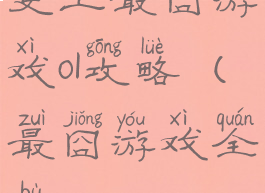 史上最囧游
xì gōng lüè
戏01攻略（
zuì jiǒng yóu xì quán
最囧游戏全
bù